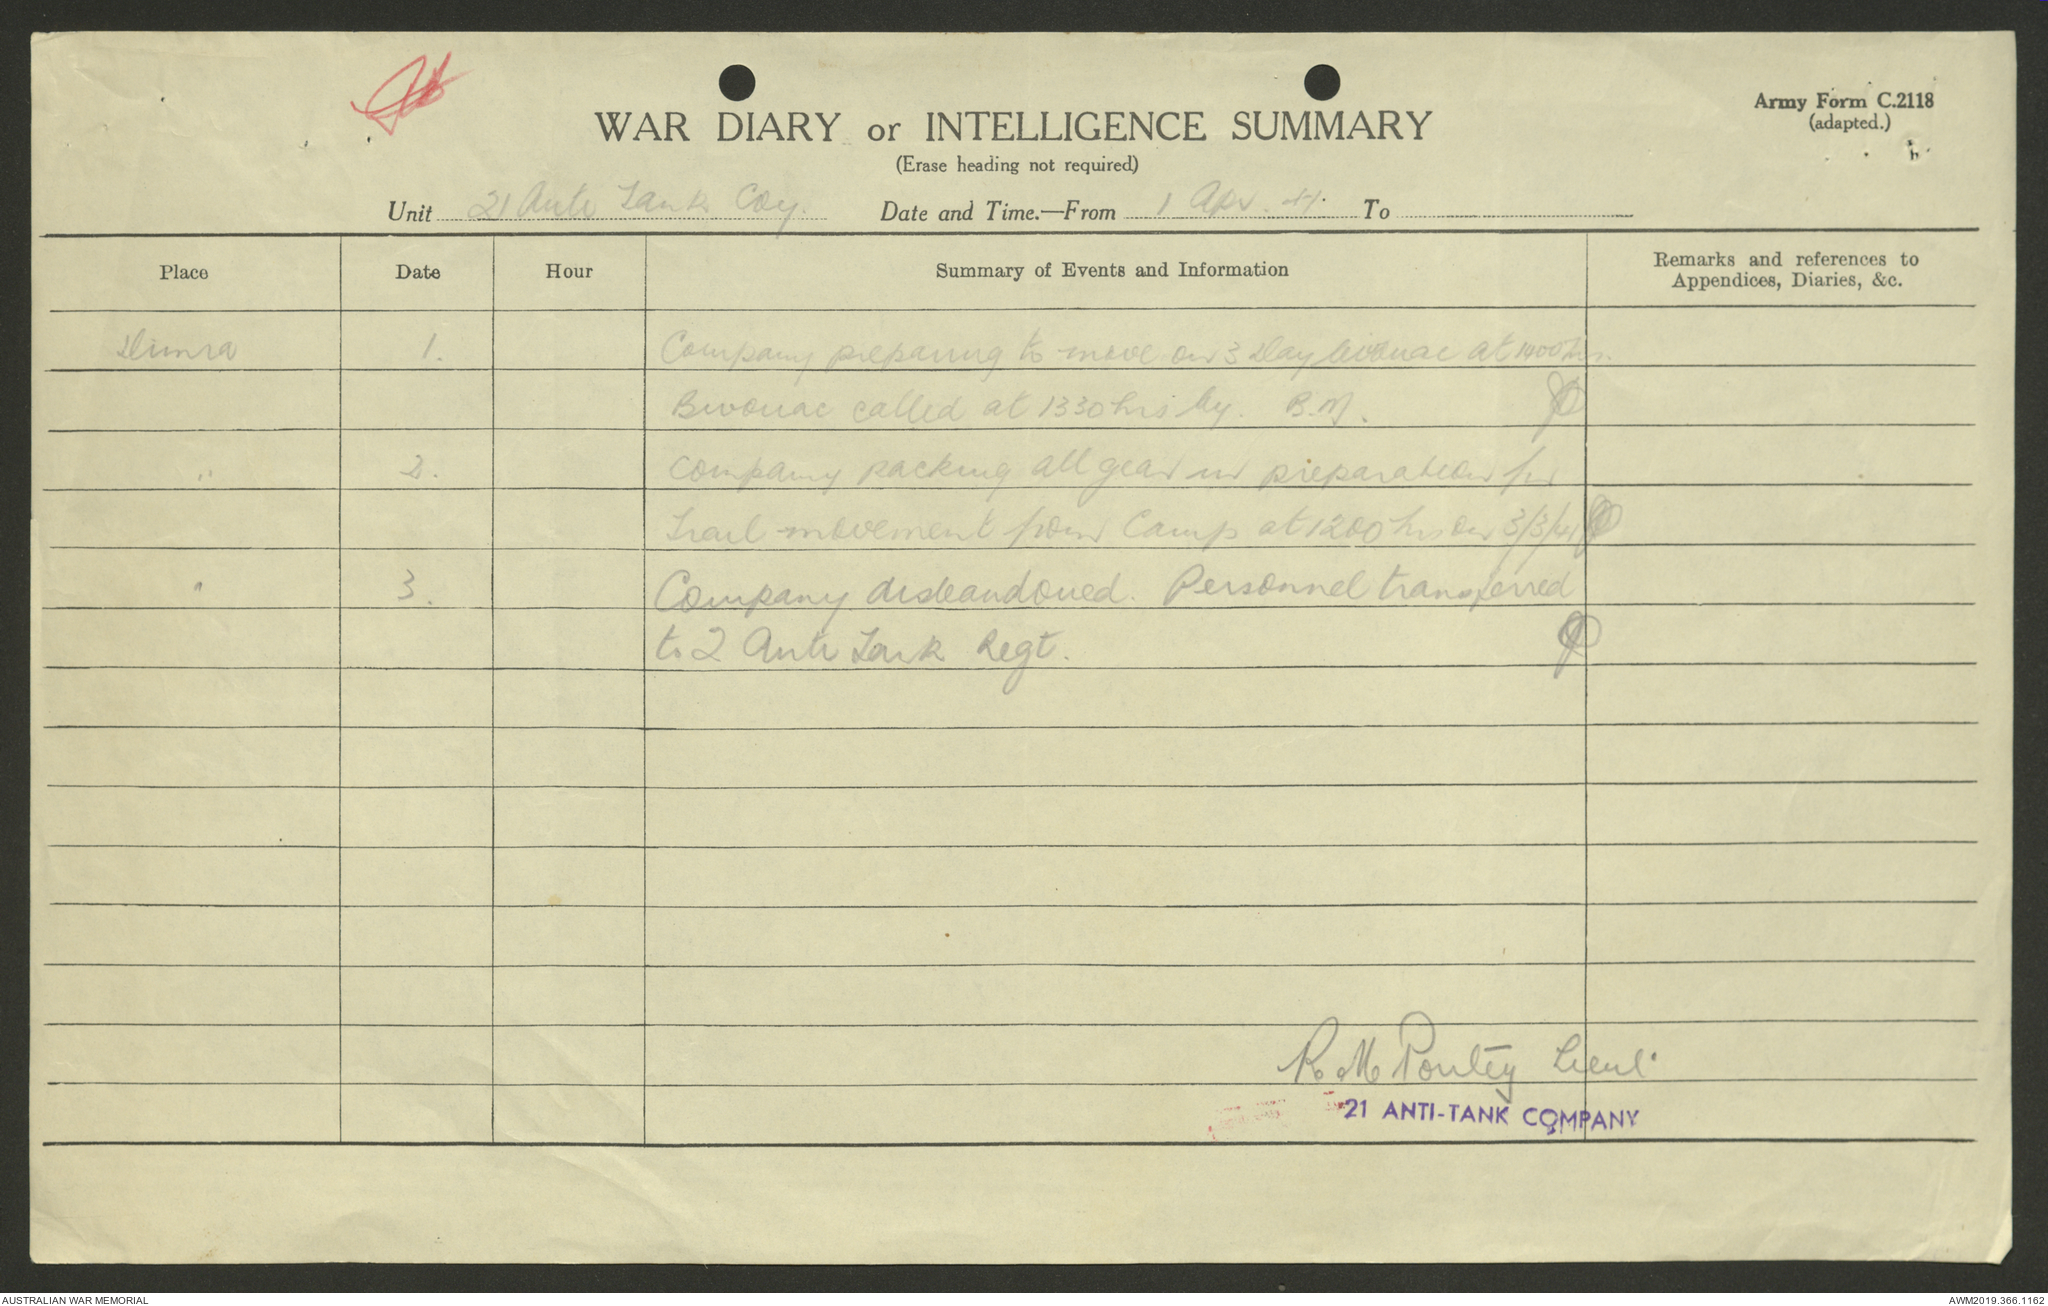 WAR DIARY or INTELLIGENCE SUMMARY
(Erase heading not required)
Army Form C.2118
(adapted.)
Unit 21 Anti Tank Coy. Date and Time.—From 1 Apr. 41. To
Place Date Hour Summary of Events and Information Remarks and references to
Appendices, Diaries, &c.
Dimra 1. Company preparing to move on 3 Day bivouac at 1400 hrs.
Bivouac called at 1330 hrs by. B.M.
" 2. Company packing all gear in preparation for
movement from Camp at 1200 hrs on 3/3/41
" 3. Company disbandoned. Personnel transferred
to 2 Anti Tank Regt.
R M Pontey Lieut.
21 ANTI-TANK COMPANY
AUSTRALIAN WAR MEMORIAL
AWM2019.366.1162